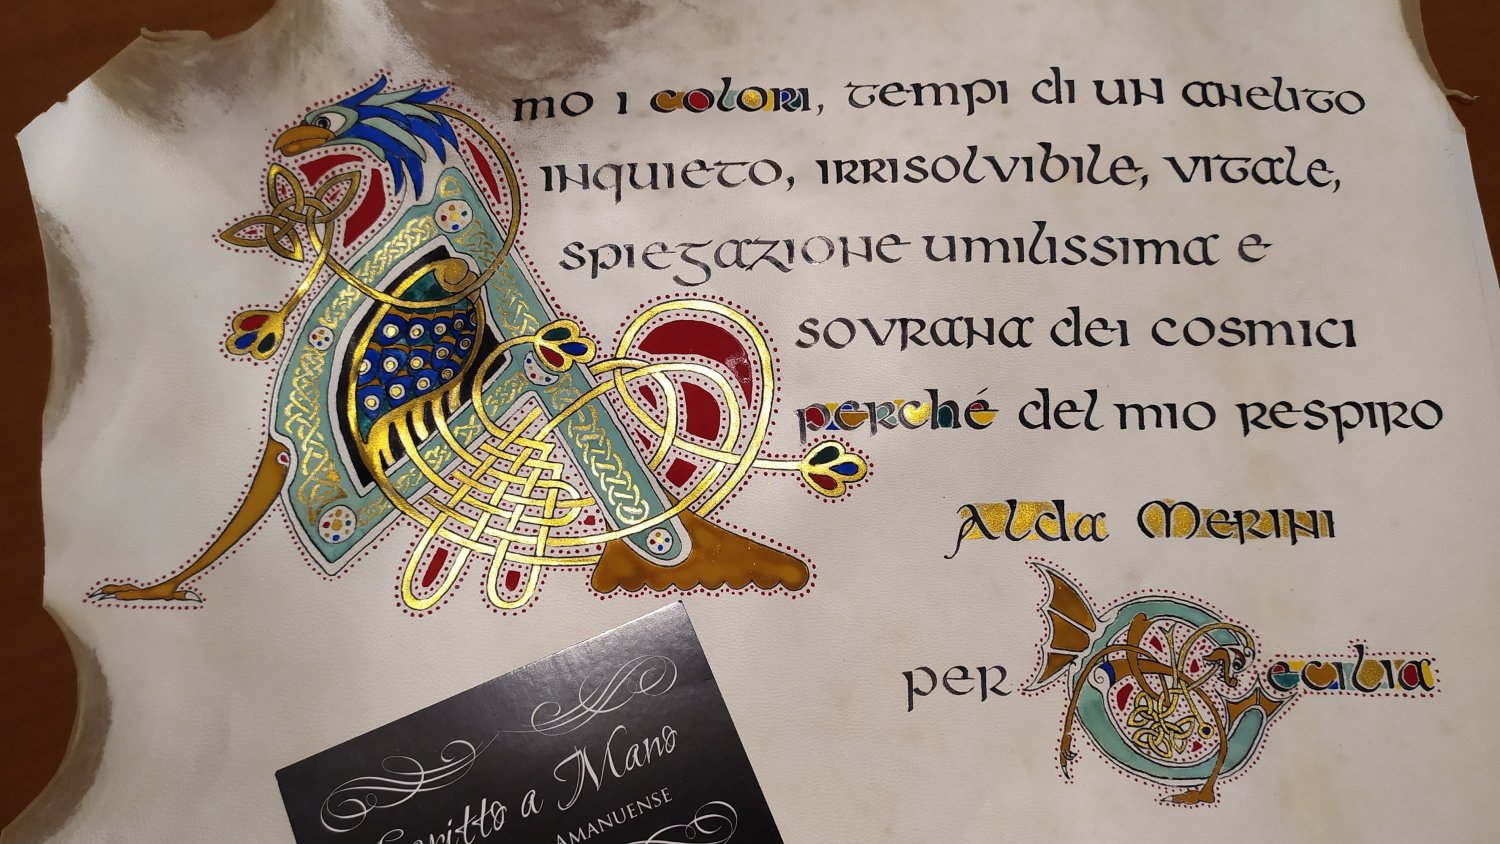 Amo i colori, tempi di un anelito
inquieto, irrisolvibile, vitale,
spiegazione umilissima e
sovrana dei cosmici
perché del mio respiro
Alda Merini
per Cecilia
Scritto a Mano
AMANUENSE